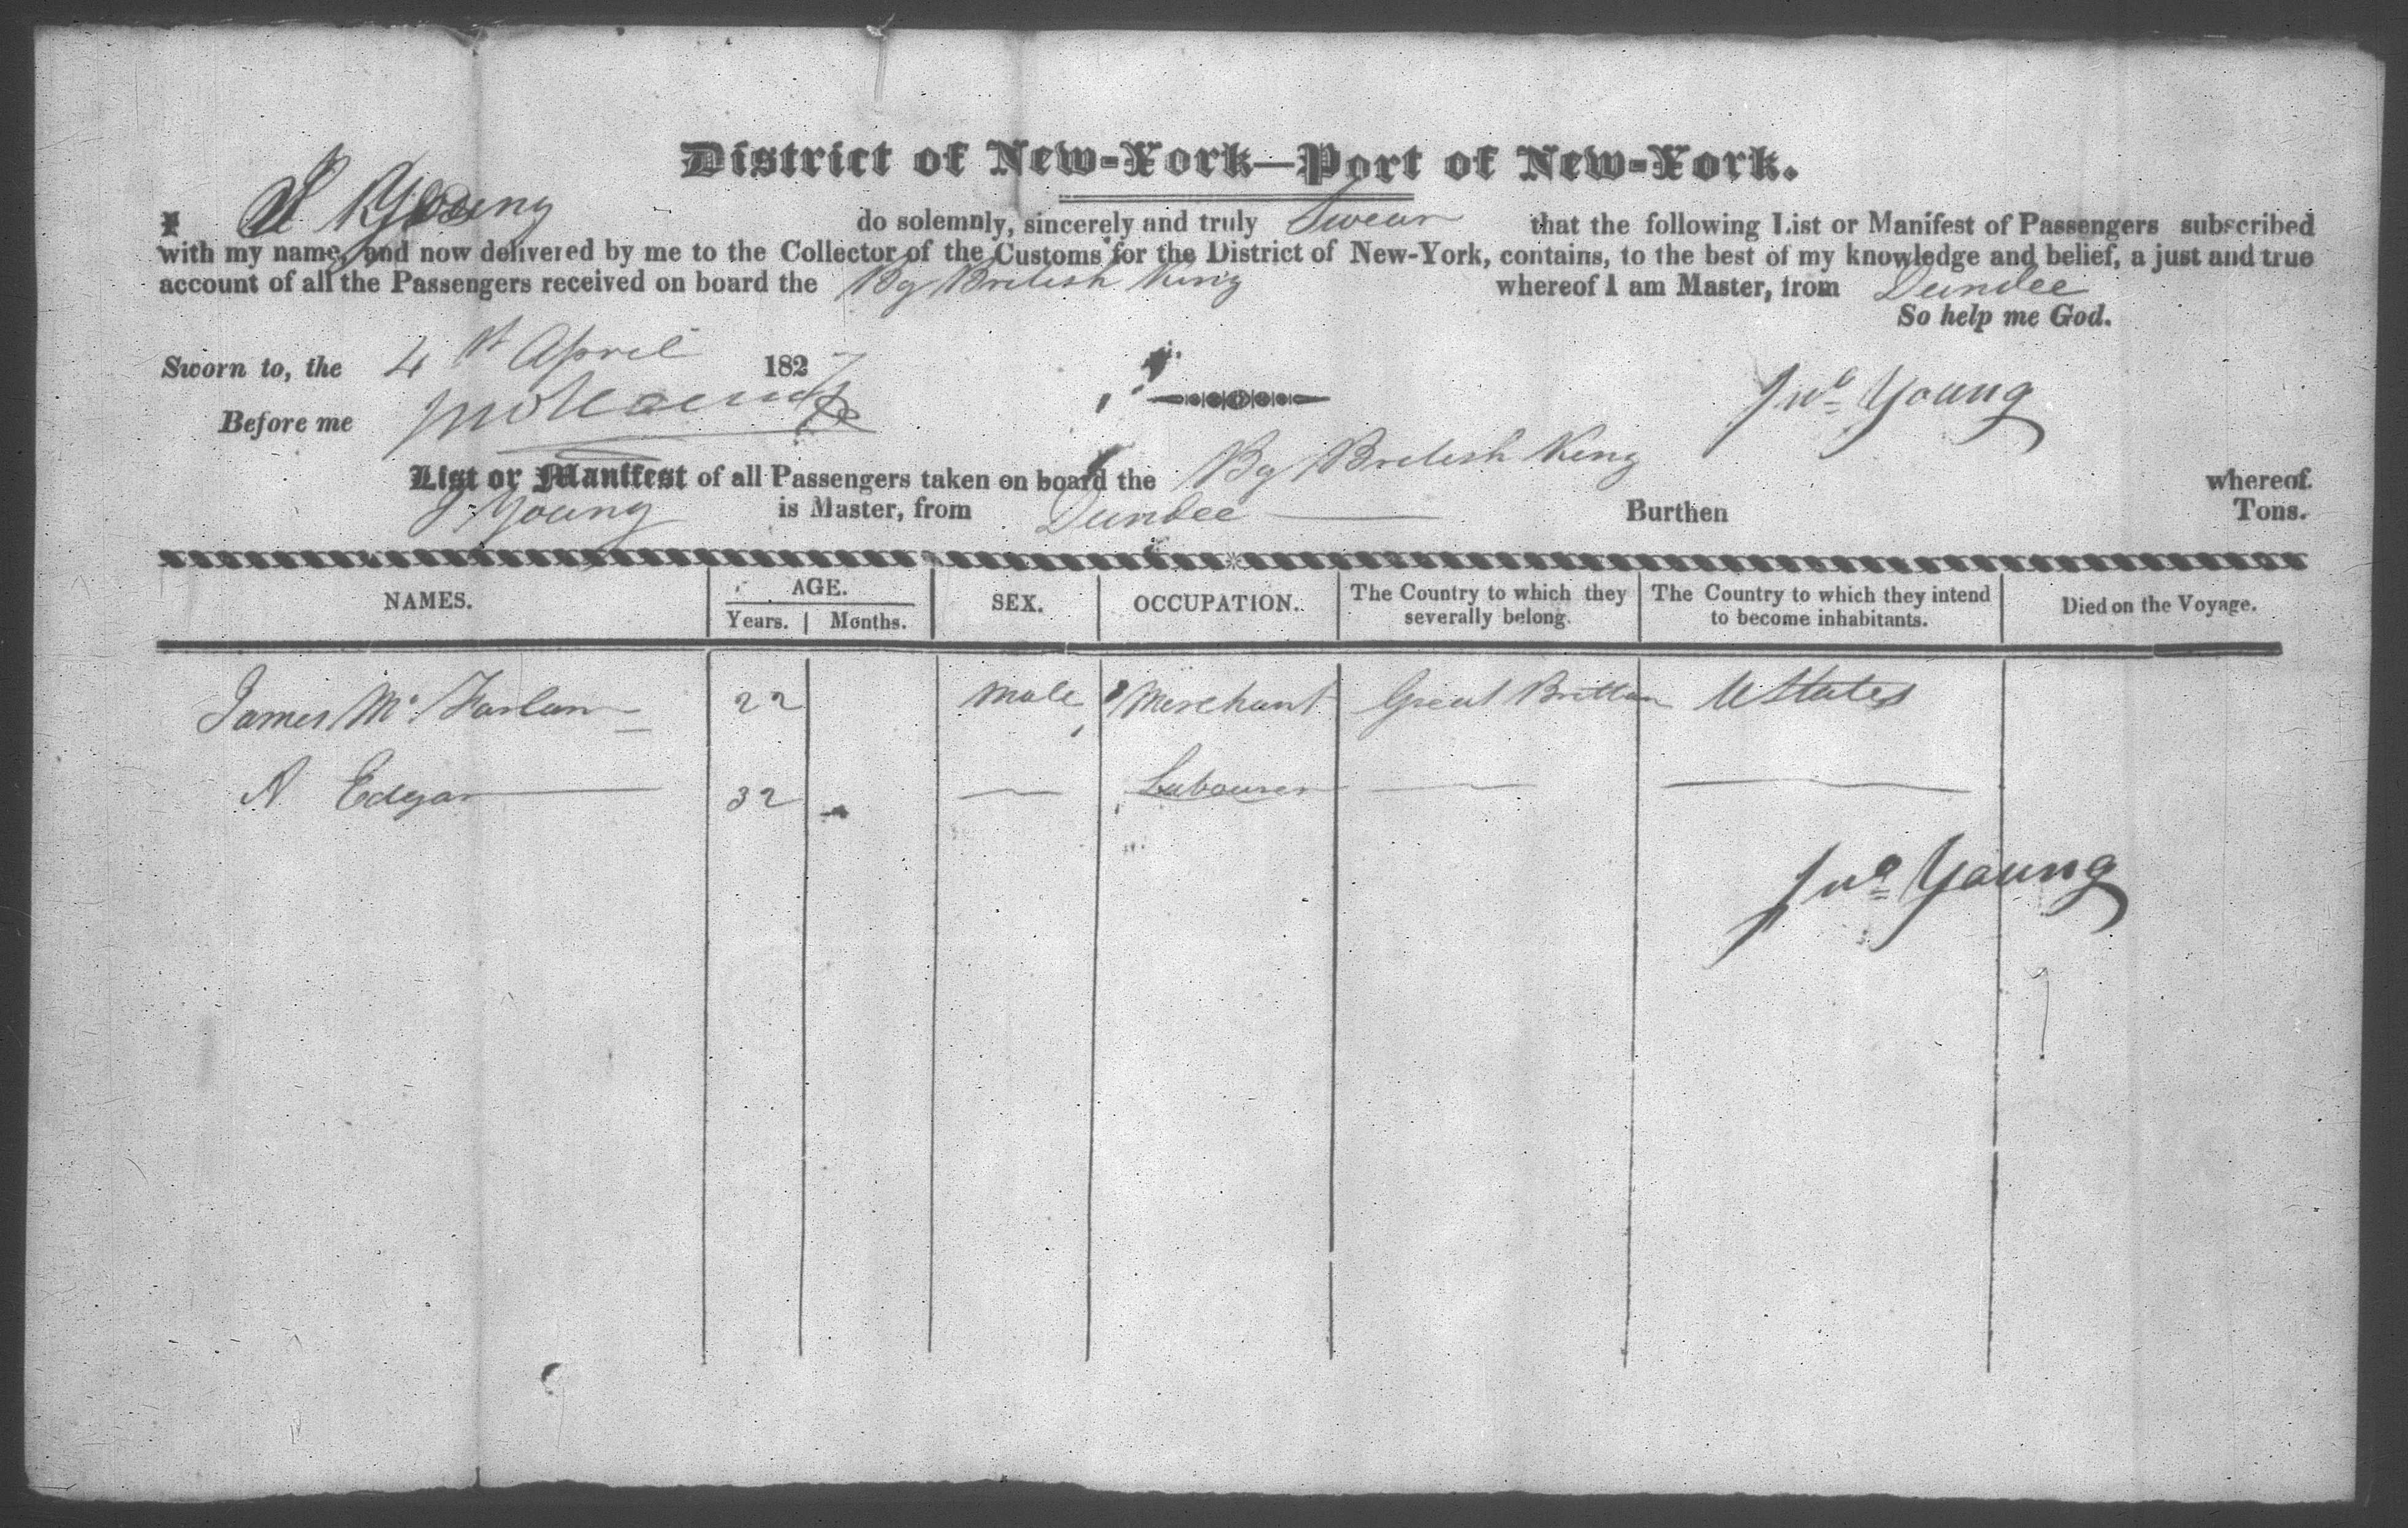 District of New-York—Port of New-York.
I J Young do solemnly, sincerely and truly Swear that the following List or Manifest of Passengers subscribed
with my name, and now delivered by me to the Collector of the Customs for the District of New-York, contains, to the best of my knowledge and belief, a just and true
account of all the Passengers received on board the Bg British King whereof I am Master, from Dundee
So help me God.
Sworn to, the 4 April 1827
Before me
Jno Young
List or Manifest of all Passengers taken on board the Bg British King whereof
J Young is Master, from Dundee — Burthen Tons.
NAMES. AGE. SEX. OCCUPATION. The Country to which they severally belong. The Country to which they intend to become inhabitants. Died on the Voyage.
Years. Months.
James Mc Farlan 22 Male Merchant Great Brittan UStates
A Edgar 32 — Labourer — —
Jno Young